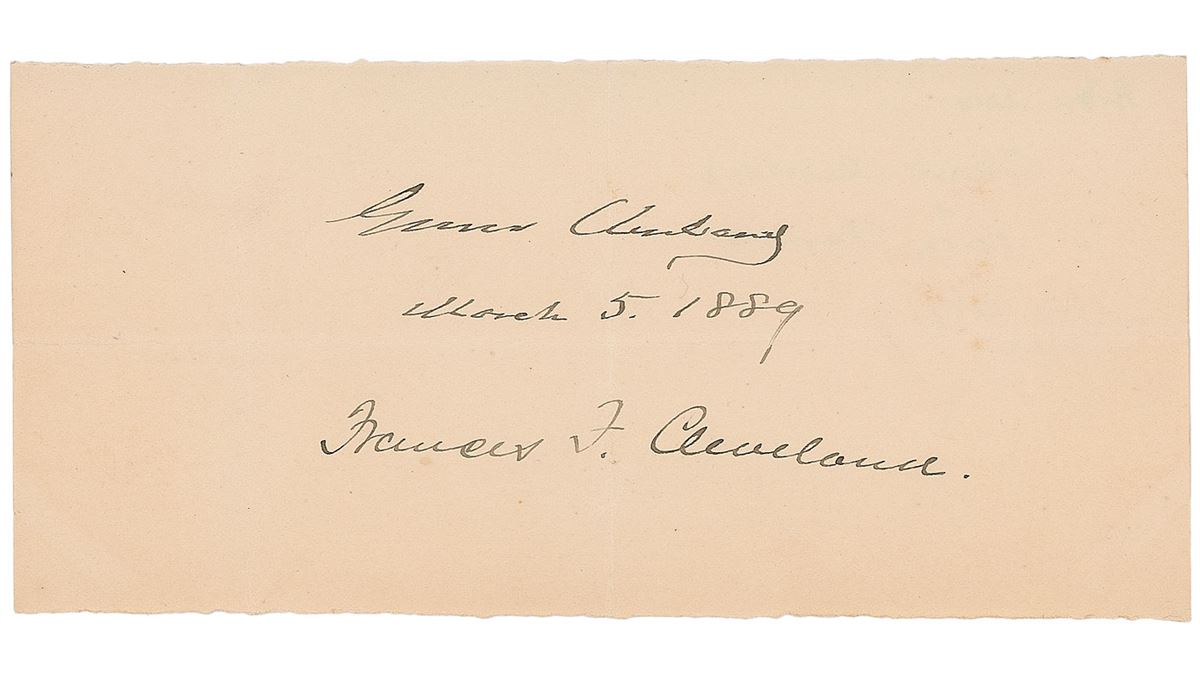 Grover Cleveland
March 5. 1889
Frances F. Cleveland.